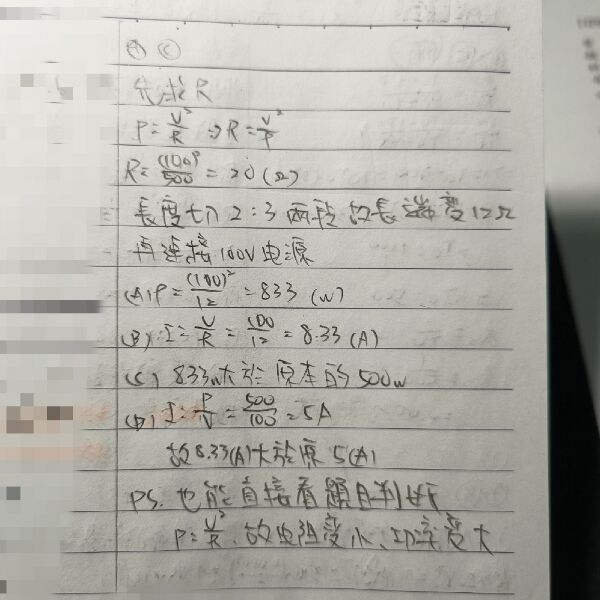 Ⓐ Ⓒ
先求R
P=V²/R ⇒R=V²/P
R=(100)²/500=20(Ω)
長度切2:3兩段故長端變12Ω
再連接100V电源
(A)P=(100)²/12=833 (W)
(B) I=V/R=100/12=8.33(A)
(C) 833w大於原本的500w
(D) I=P/V=500/100=5A
故8.33(A)大於原5(A)
PS. 也能直接看題目判斷
P=V²/R.故电阻變小、功率變大